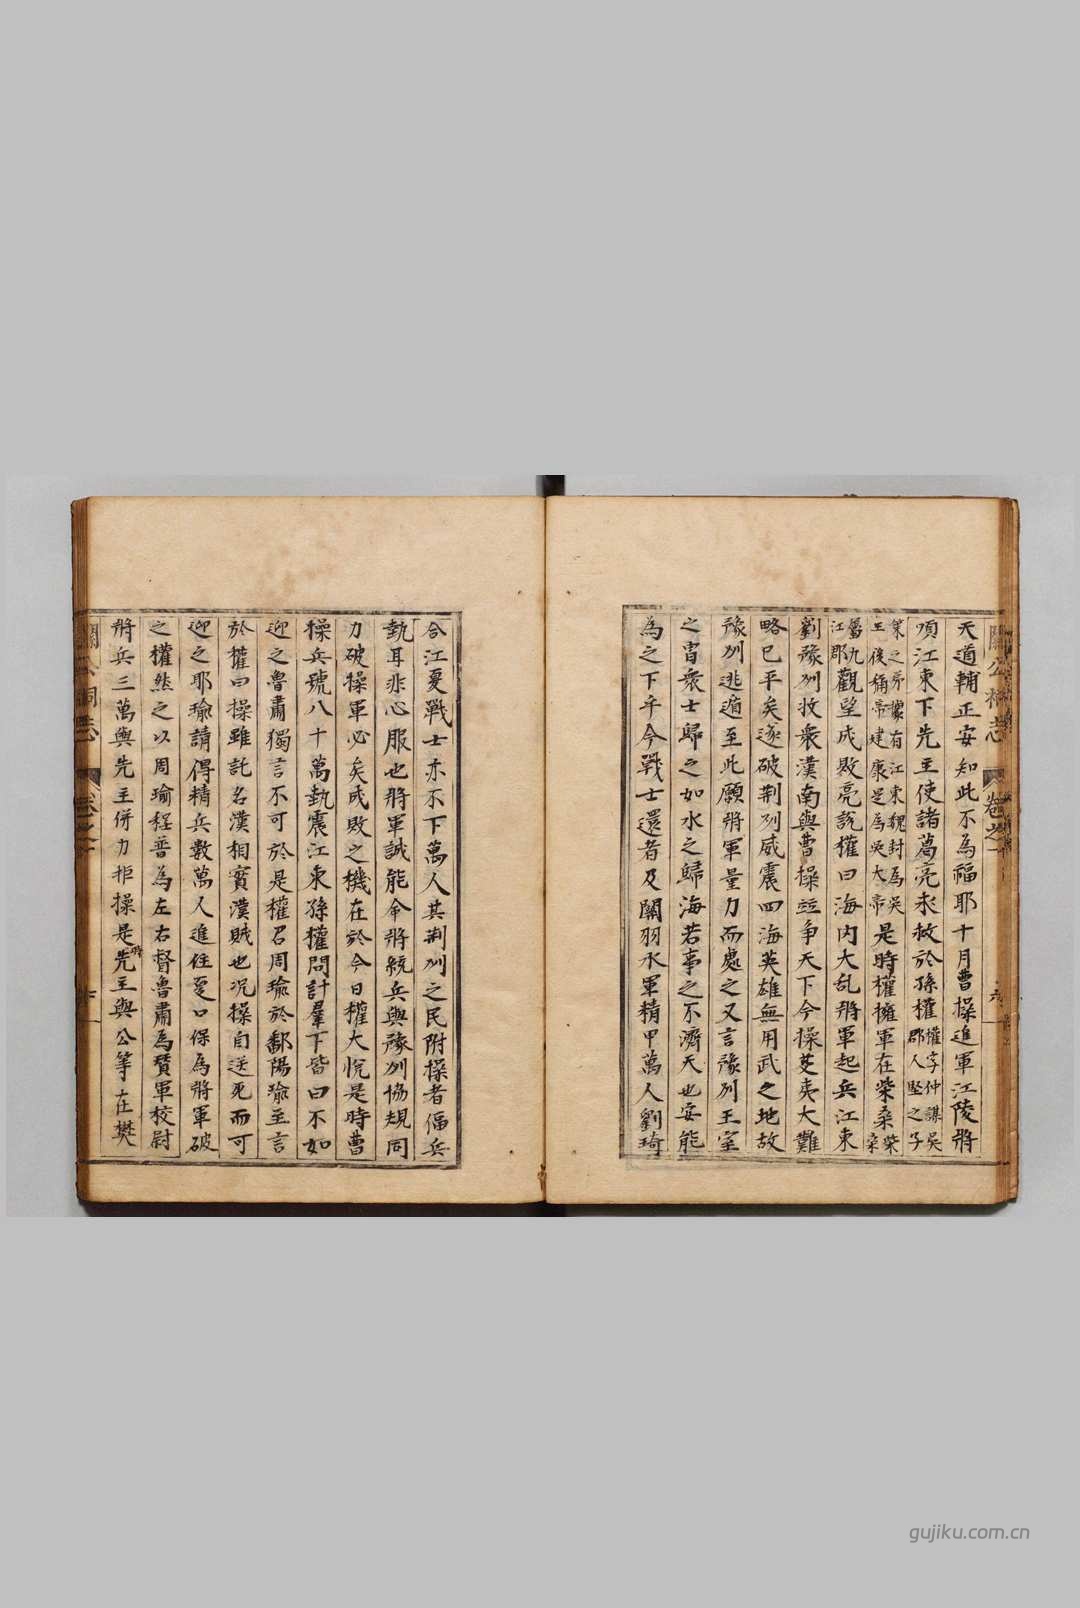 天道輔正安知此不為福耶十月曹操進軍江陵將
順江東下先主使諸葛亮求救於孫權權字仲謀吳郡人堅之子
策之弟據有江東魏封為吳王後稱帝建康是為吳大帝是時權擁軍在柴桑柴桑
屬九江郡觀望成敗亮說權曰海內大乱將軍起兵江東
劉豫州收衆漢南與曹操並争天下今操芟夷大難
略已平矣遂破荆州威震四海英雄無用武之地故
豫州逃遁至此願將軍量力而處之又言豫州王室
之冑衆士歸之如水之歸海若事之不濟天也安能
為之下乎今戰士還者及關羽水軍精甲萬人劉琦
合江夏戰士亦不下萬人其荆州之民附操者偪兵
埶耳非心服也將軍誠能命將統兵與豫州協規同
力破操軍必矣成敗之機在於今日權大悅是時曹
操兵號八十萬埶震江東孫權問計羣下皆曰不如
迎之魯肅獨言不可於是權召周瑜於鄱陽瑜至言
於權曰操雖託名漢相實漢賊也况操自送死而可
迎之耶瑜請得精兵數萬人進住夏口保為將軍破
之權然之以周瑜程普為左右督魯肅為贊軍校尉
將兵三萬與先主併力拒操是時先主與公等在樊
關公祠志
卷之一
六
gujiku.com.cn